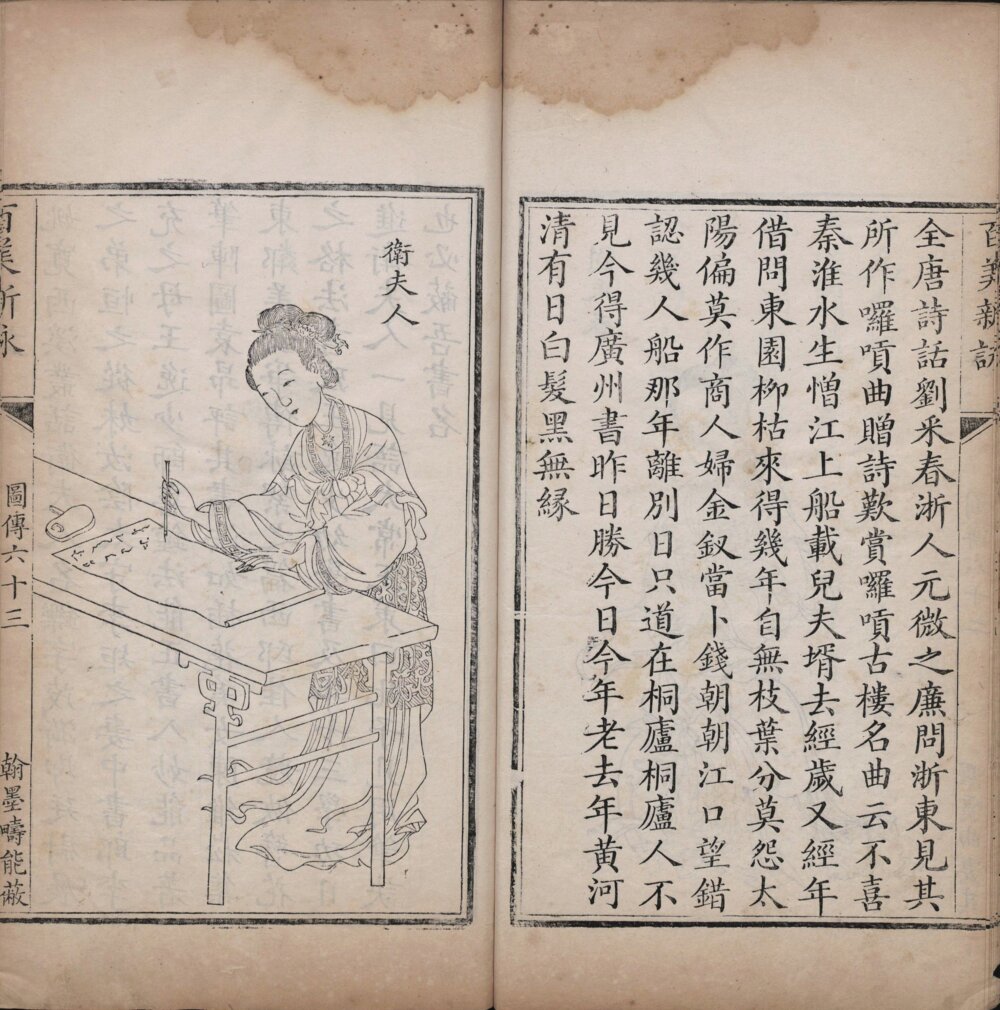 百美新詠
全唐詩話劉采春浙人元微之廉問浙東見其
所作囉嗊曲贈詩歎賞囉嗊古樓名曲云不喜
秦淮水生憎江上船載兒夫壻去經歲又經年
借問東園柳枯來得幾年自無枝葉分莫怨太
陽偏莫作商人婦金釵當卜錢朝朝江口望錯
認幾人船那年離別日只道在桐廬桐廬人不
見今得廣州書昨日勝今日今年老去年黃河
清有日白髮黑無緣
衛夫人
百美新詠
圖傳六十三
翰墨疇能蔽